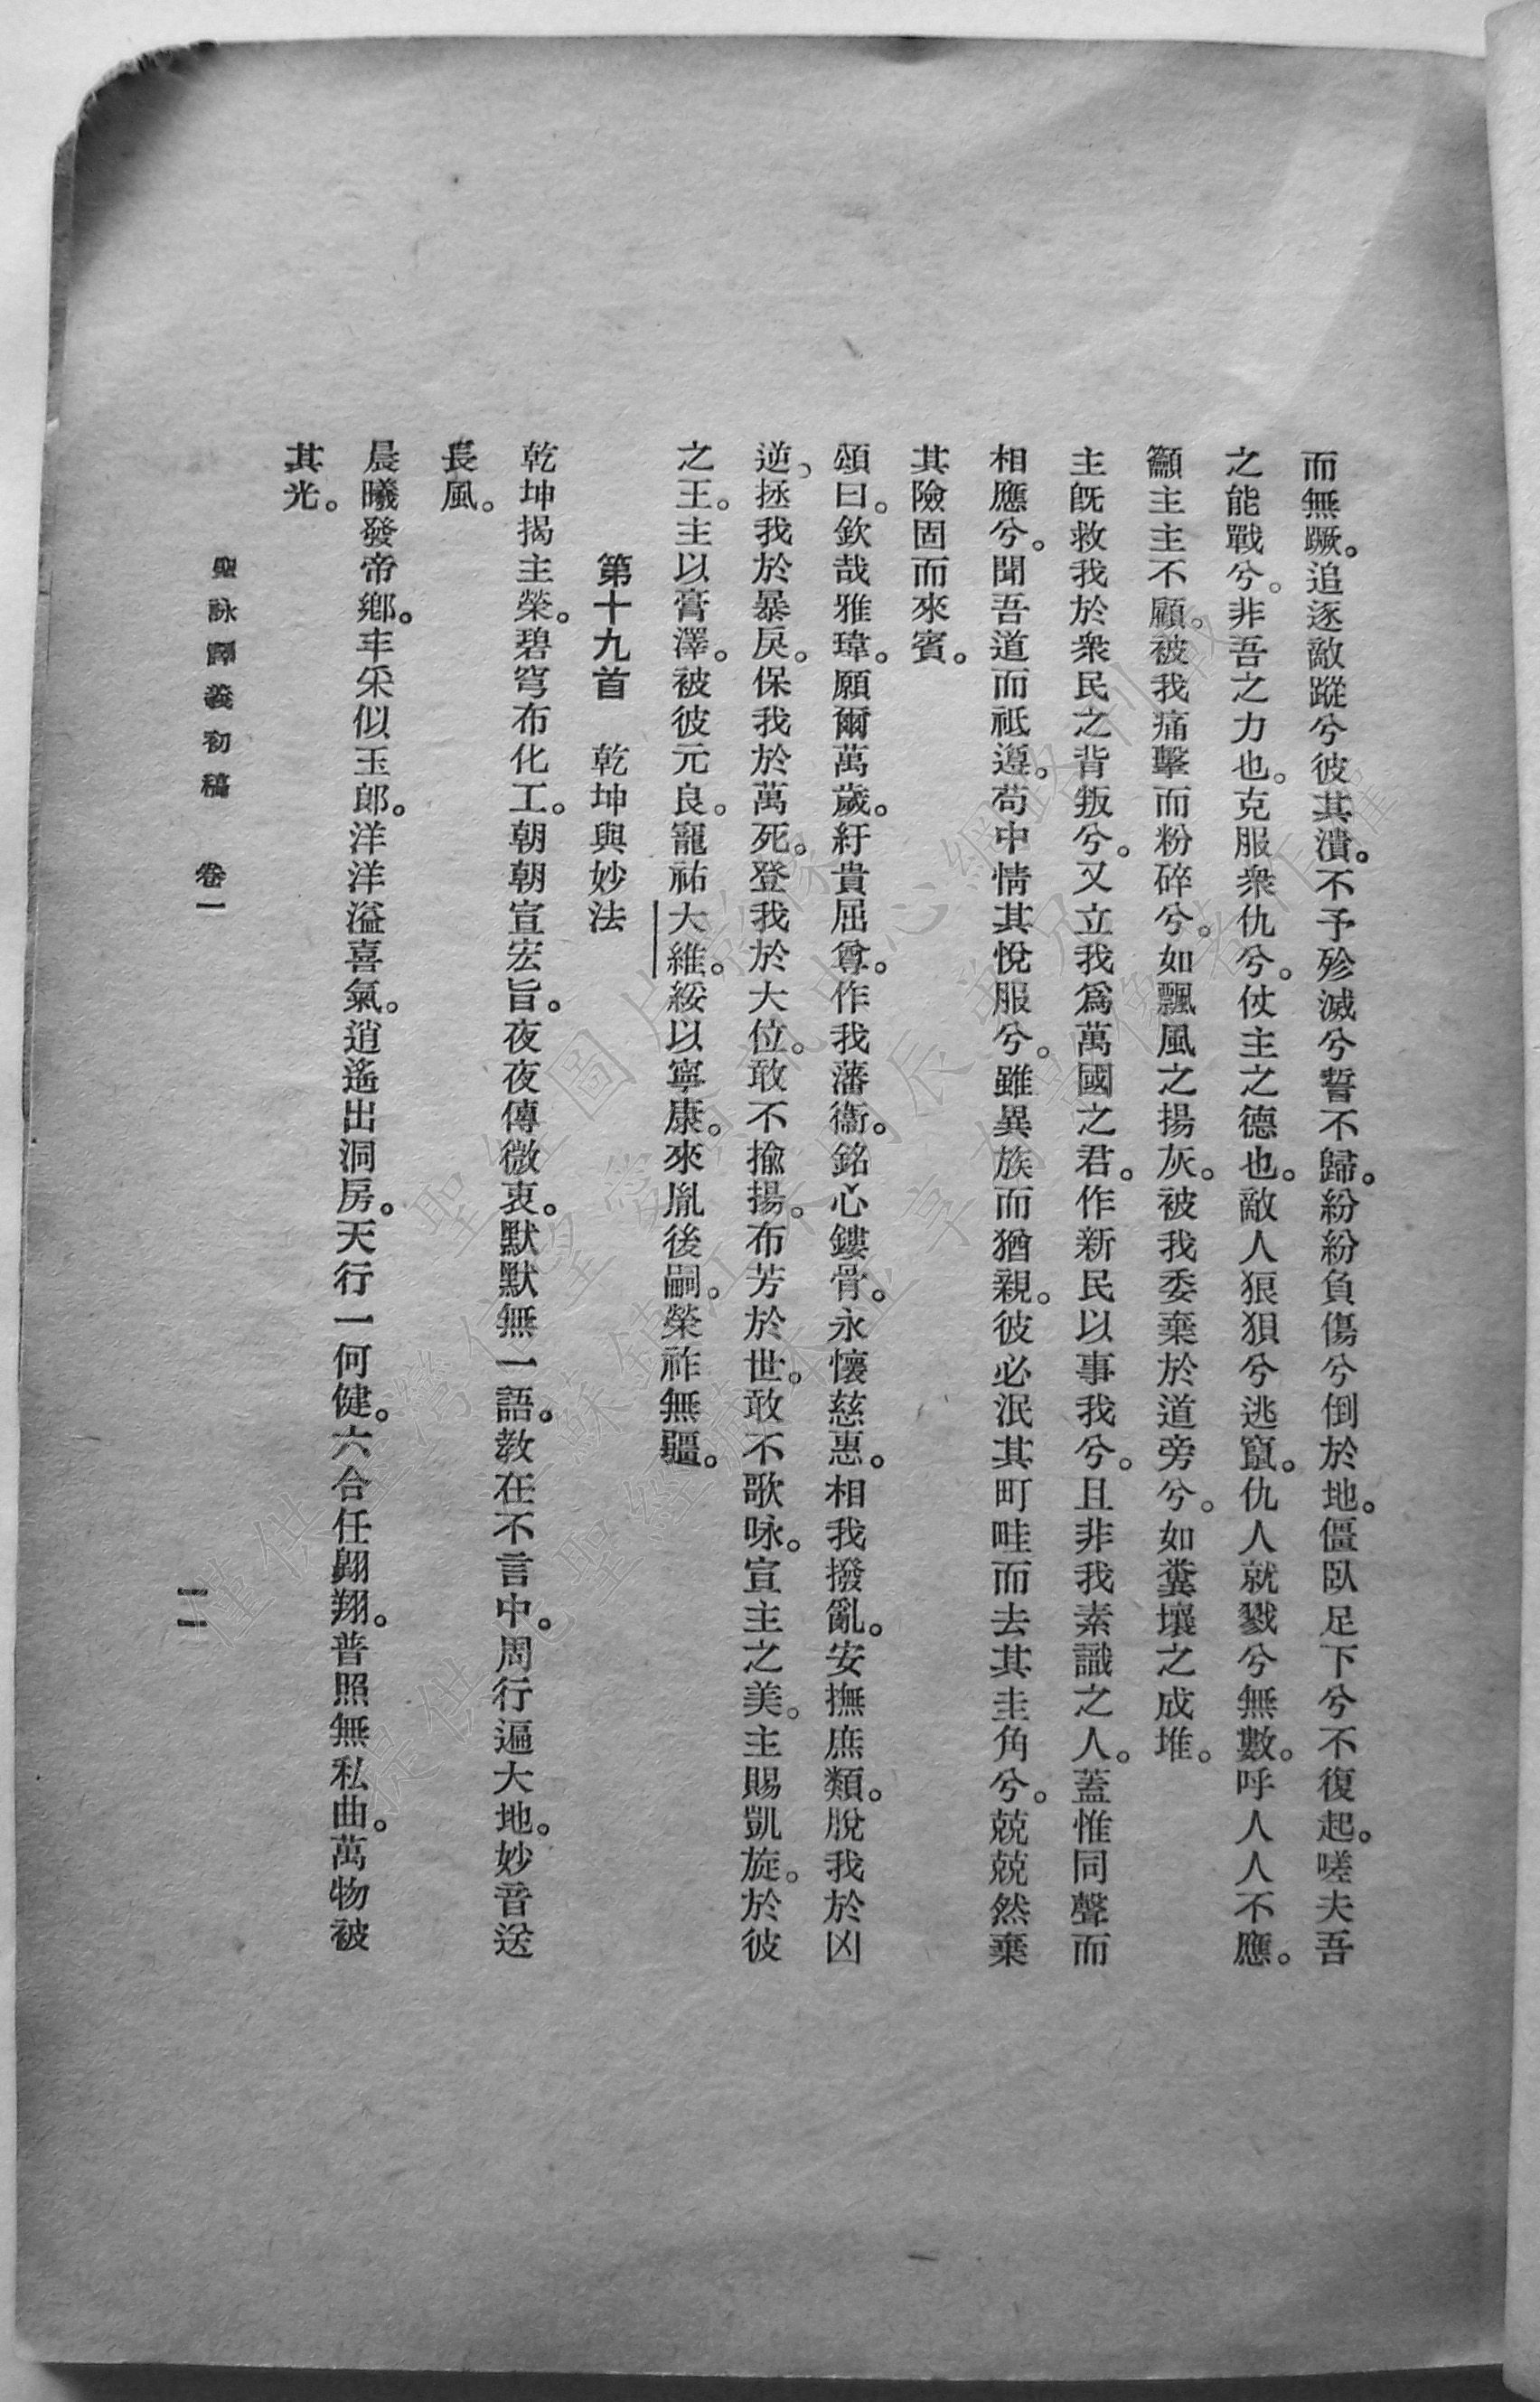 而無蹶。追逐敵蹤兮彼其潰。不予殄滅兮誓不歸。紛紛負傷兮倒於地。僵臥足下兮不復起。嗟夫吾
之能戰兮。非吾之力也。克服衆仇兮。仗主之德也。敵人狼狽兮逃竄。仇人就戮兮無數。呼人人不應。
籲主主不顧。被我痛擊而粉碎兮。如飄風之揚灰。被我委棄於道旁兮。如糞壤之成堆。
主旣救我於衆民之背叛兮。又立我爲萬國之君。作新民以事我兮。且非我素識之人。蓋惟同聲而
相應兮。聞吾道而祗遵。苟中情其悅服兮。雖異族而猶親。彼必泯其町畦而去其圭角兮。兢兢然棄
其險固而來賓。
頌曰。欽哉雅瑋。願爾萬歲。紆貴屈尊。作我藩衞。銘心鏤骨。永懷慈惠。相我撥亂。安撫庶類。脫我於凶
逆、拯我於暴戾。保我於萬死。登我於大位。敢不揄揚。布芳於世。敢不歌咏。宣主之美。主賜凱旋。於彼
之王。主以膏澤。被彼元良。寵祐大維。綏以寧康。來胤後嗣。榮祚無疆。
第十九首　乾坤與妙法
乾坤揭主榮。碧穹布化工。朝朝宣宏旨。夜夜傳微衷。默默無一語。教在不言中。周行遍大地。妙音送
長風。
晨曦發帝鄕。丰采似玉郞。洋洋溢喜氣。逍遙出洞房。天行一何健。六合任翺翔。普照無私曲。萬物被
其光。
聖詠譯義初稿　卷一
二一
聖經圖片影像
僅供臺灣信望愛資訊中心網路刊載